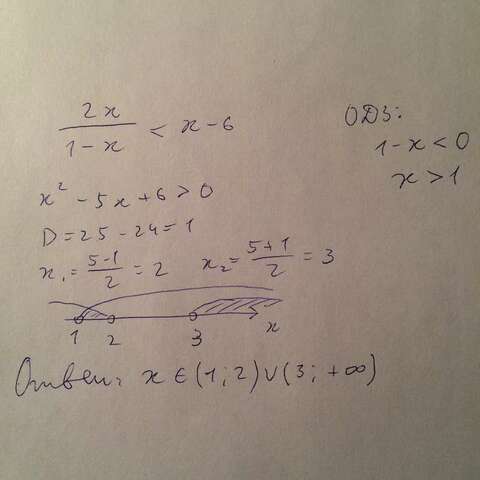 2x/(1-x) < x-6
ОДЗ:
1-x<0
x>1
x² -5x+6>0
D=25-24=1
x₁=(5-1)/2=2 x₂=(5+1)/2=3
1 2 3 x
Ответ: x∈(1;2)∪(3;+∞)